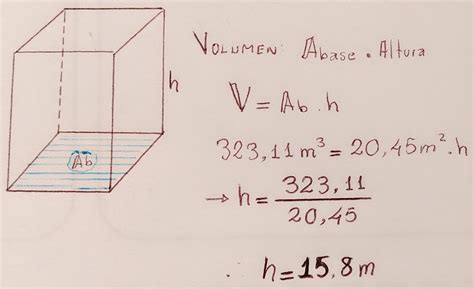 h
Ab
VOLUMEN: Abase . Altura
V = Ab . h
323,11 m³ = 20,45 m² . h
→ h = 323,11 / 20,45
∴ h = 15,8 m